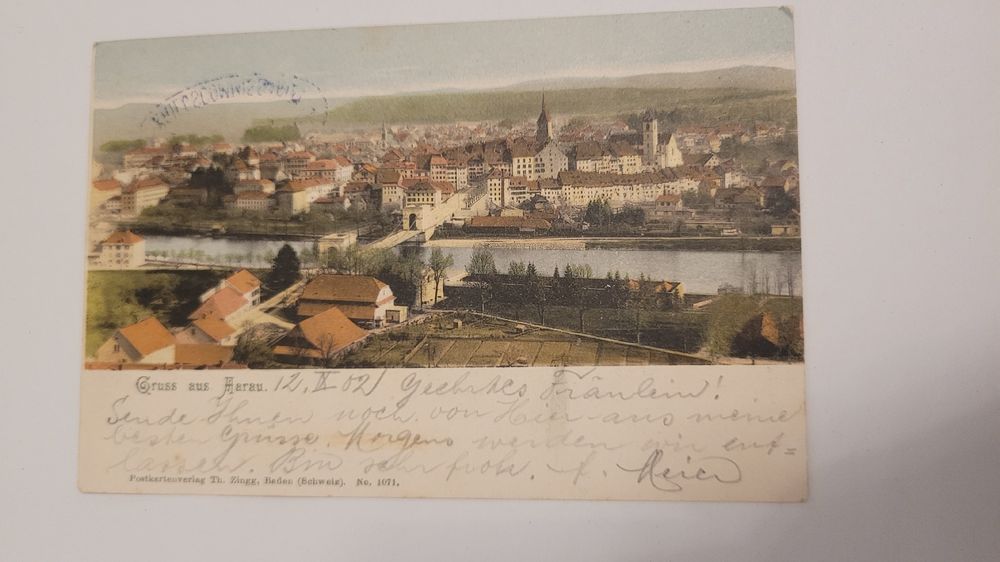 Gruss aus Aarau. 12. X 02 Geehrtes Fräulein!
Sende Ihnen noch von Hier aus meine
besten Grüsse. Morgens werden wir ent=
lassen. Bin sehr froh. A. Meier
Postkartenverlag Th. Zingg, Baden (Schweiz). No. 1071.